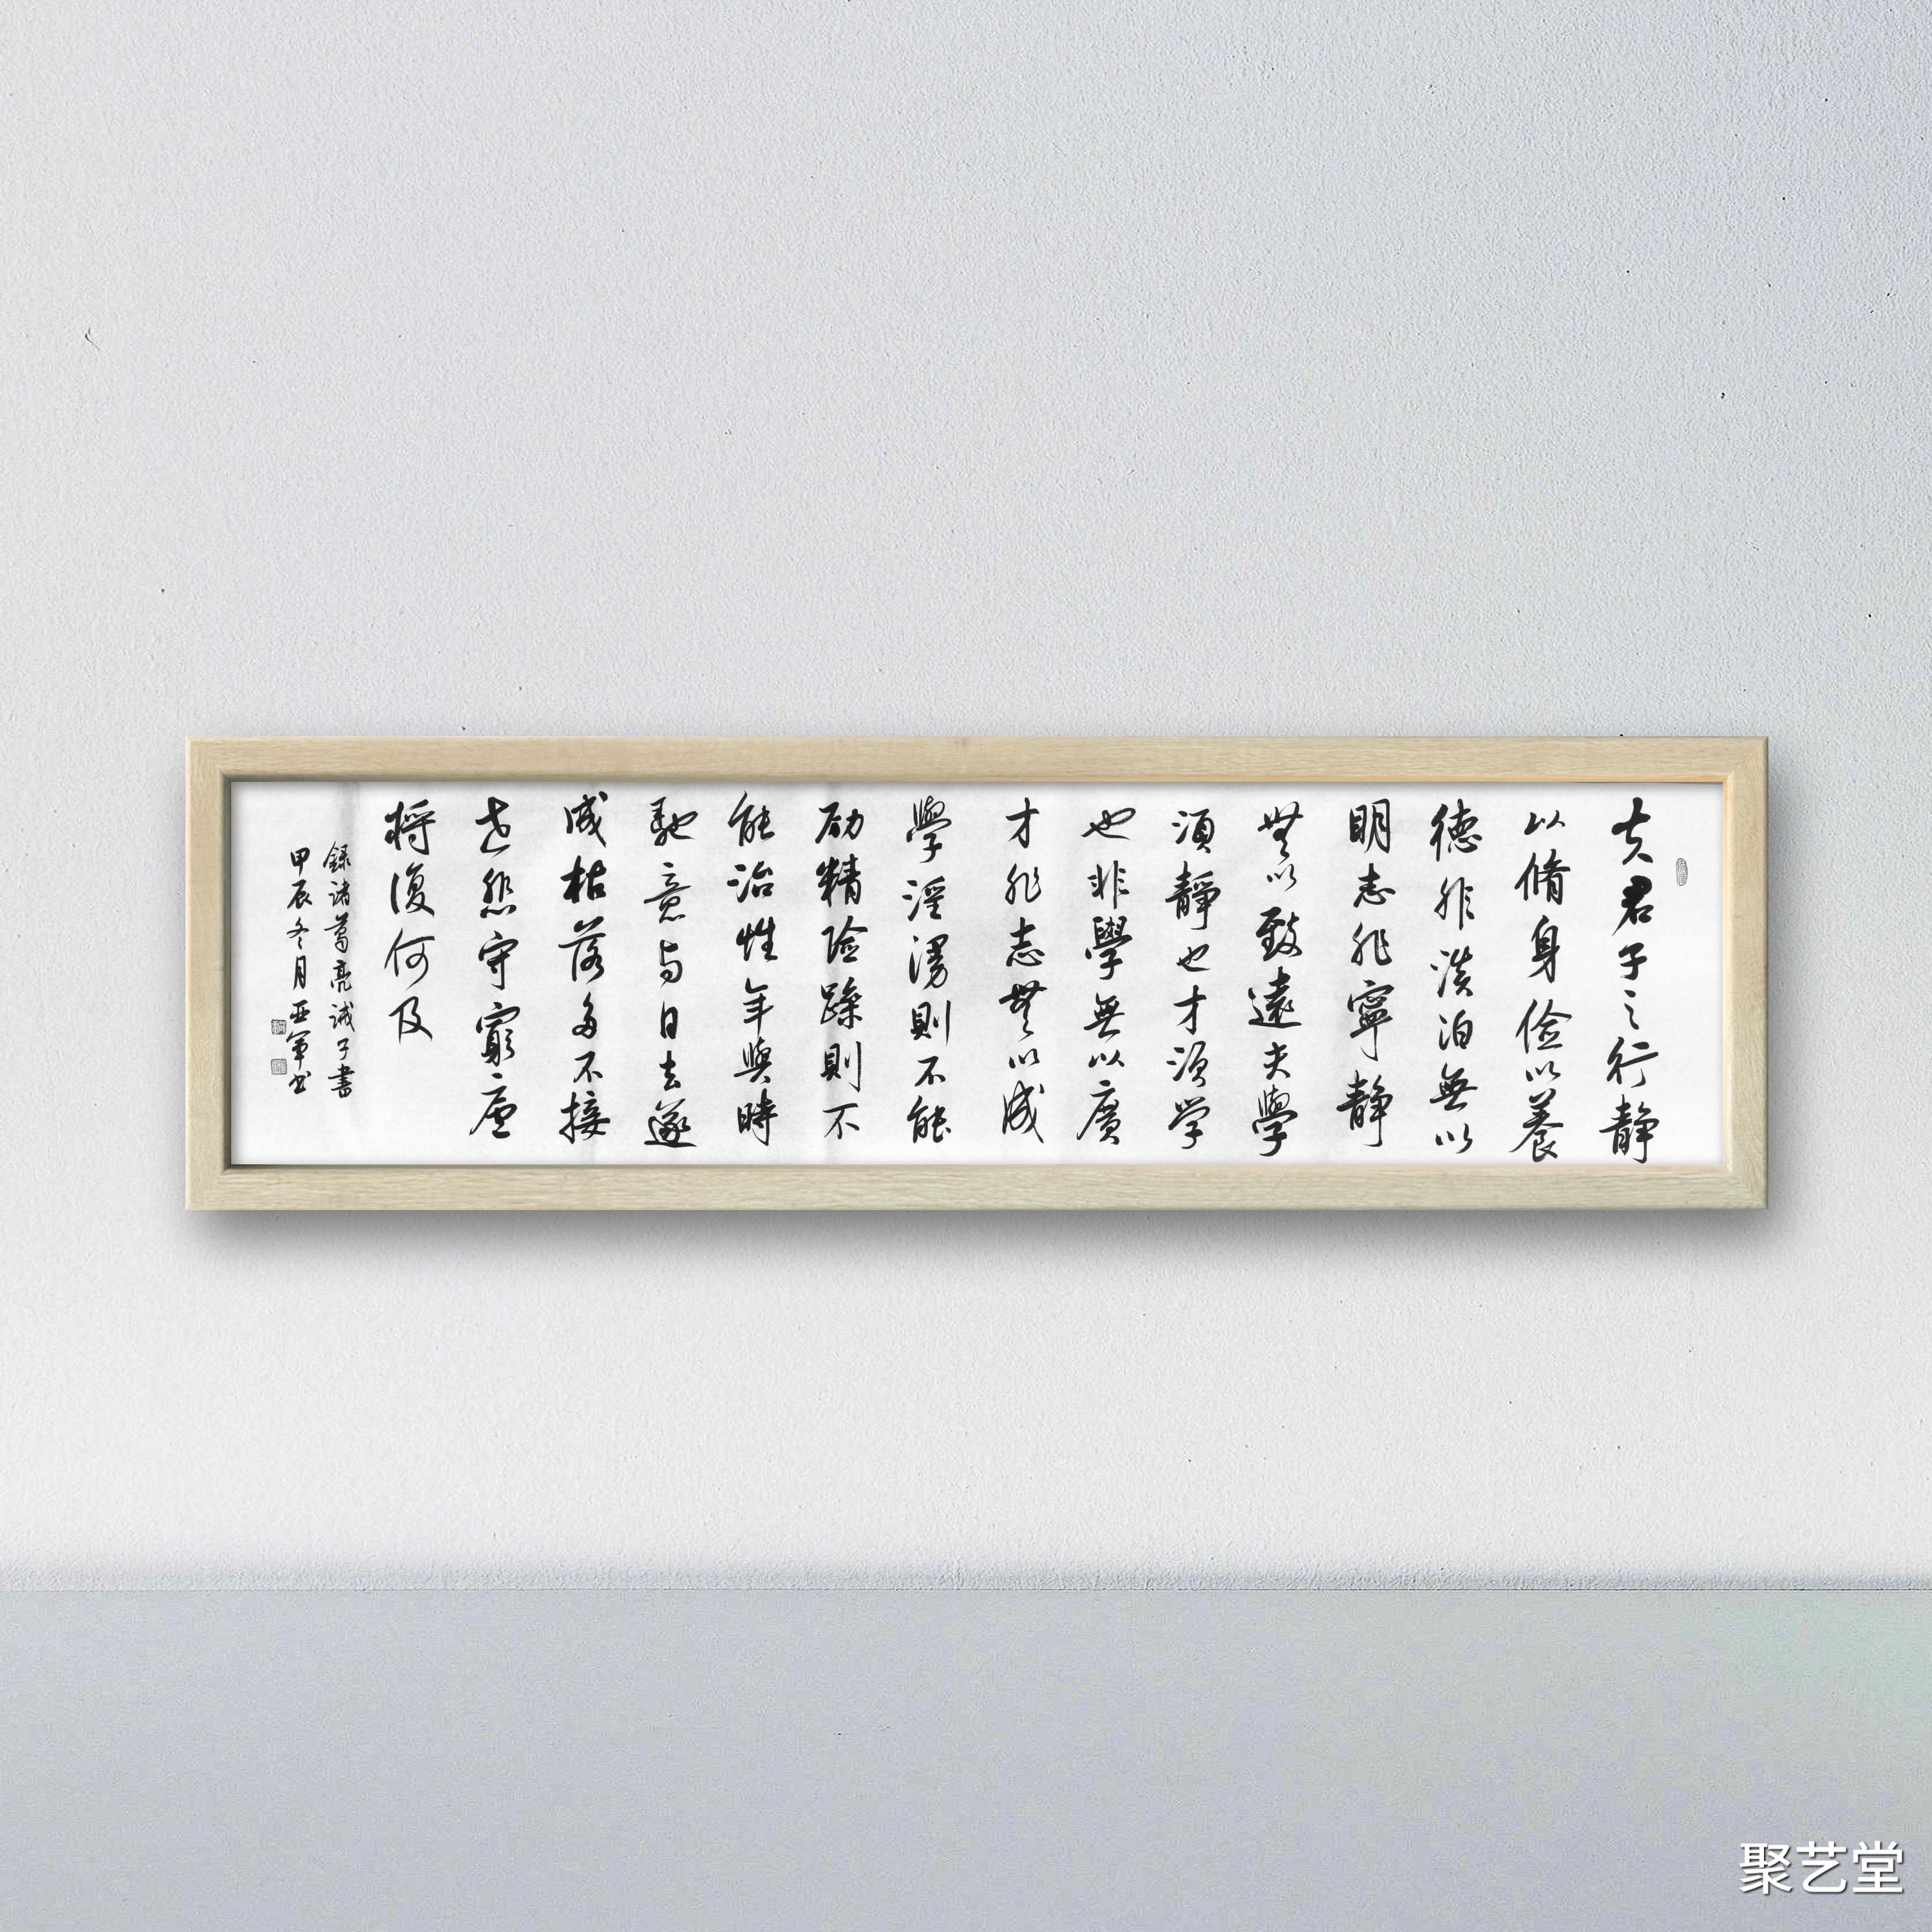 夫君子之行静
以脩身俭以養
德非淡泊無以
明志非寧静
無以致遠夫學
須静也才須学
也非學無以廣
才非志無以成
學淫漫則不能
励精险躁則不
能治性年與時
馳意与日去遂
成枯落多不接
世悲守窮廬
将復何及
録诸葛亮诫子書
甲辰冬月亚军书
聚艺堂